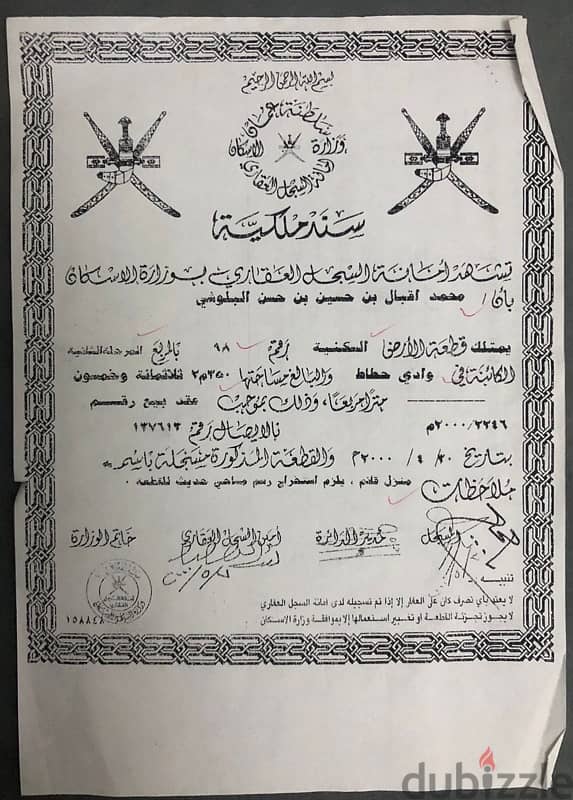 بسم الله الرحمن الرحيم
سلطنة عمان
وزارة الاسكان
امانة السجل العقاري
سند ملكية
تشهد أمانة السجل العقاري بوزارة الاسكان
بأن / محمد اقبال بن حسين بن حسن البلوشي
يمتلك قطعة الأرض السكنية رقم ٩٨ بالمربع المرحلة الثانية
الكائنة في وادي حطاط والبالغ مساحتها ٣٥٠م٢ ثلاثمائة وخمسون
متراً مربعاً، وذلك بموجب عقد بيع رقم
٢٠٠٠/٢٢٤٦م بالايصال رقم ١٣٧٦١٣
بتاريخ ٣٠ / ٤ / ٢٠٠٠م والقطعة المذكورة مسجلة باسمه
ملاحظات منزل قائم ، يلزم استخراج رسم مساحي حديث للقطعه .
المسجل مدير الدائرة أمين السجل العقاري خاتم الوزارة
تنبيه
لا يعتد بأي تصرف كان على العقار إلا إذا تم تسجيله لدى امانة السجل العقاري
لا يجوز تجزئة القطعة أو تغيير استعمالها إلا بموافقة وزارة الاسكان
١٥٨٨٤٨
dubizzle